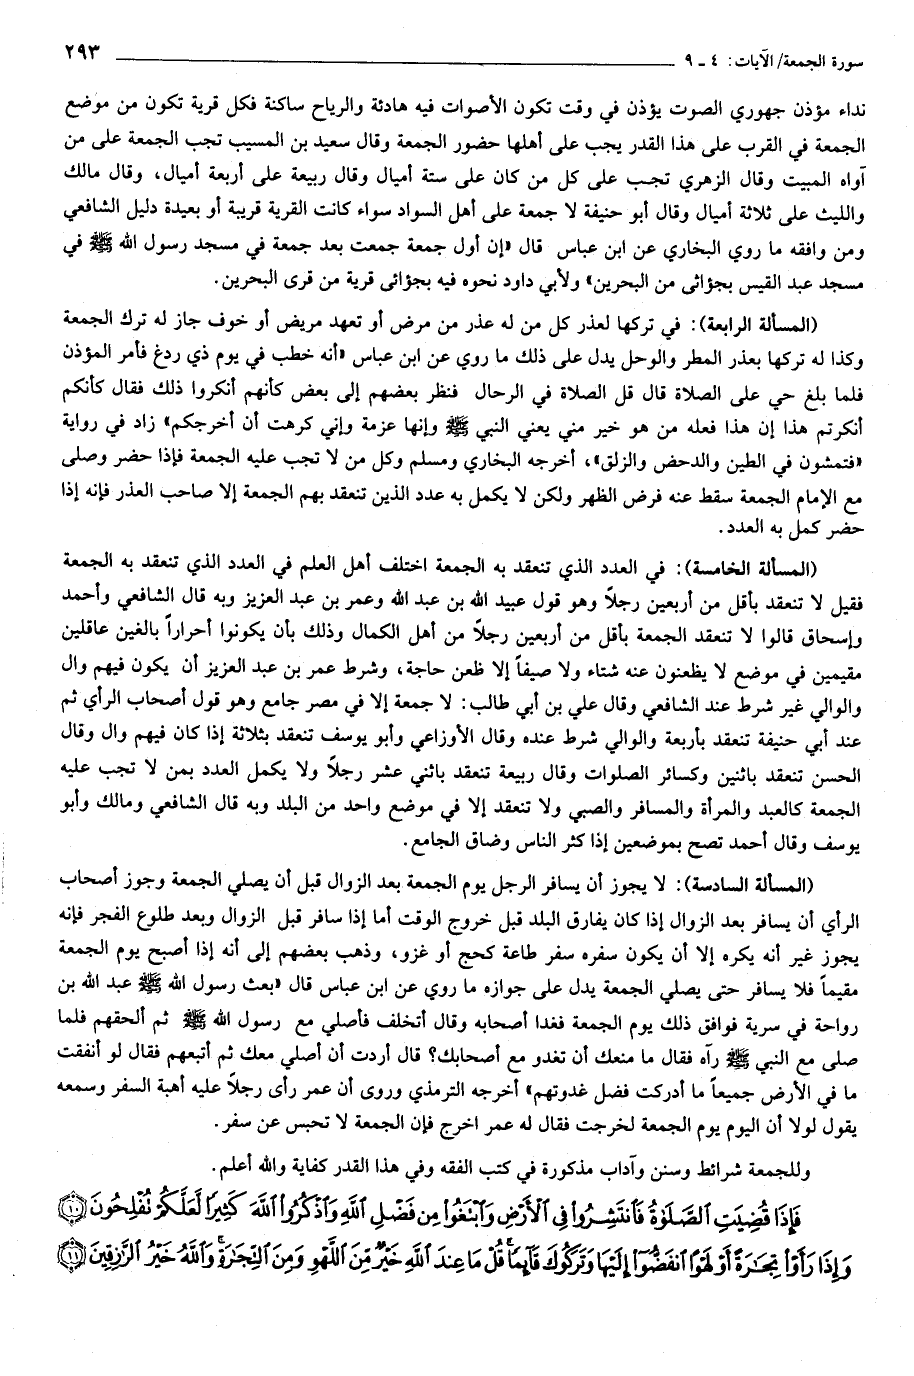 سورة الجمعة/ الآيات: ٤ ـ ٩ ٢٩٣
نداء مؤذن جهوري الصوت يؤذن في وقت تكون الأصوات فيه هادئة والرياح ساكنة فكل قرية تكون من موضع
الجمعة في القرب على هذا القدر يجب على أهلها حضور الجمعة وقال سعيد بن المسيب تجب الجمعة على من
آواه المبيت وقال الزهري تجب على كل من كان على ستة أميال وقال ربيعة على أربعة أميال، وقال مالك
والليث على ثلاثة أميال وقال أبو حنيفة لا جمعة على أهل السواد سواء كانت القرية قريبة أو بعيدة دليل الشافعي
ومن وافقه ما روي البخاري عن ابن عباس قال «إن أول جمعة جمعت بعد جمعة في مسجد رسول الله ﷺ في
مسجد عبد القيس بجؤاثى من البحرين» ولأبي داود نحوه فيه بجؤاثى قرية من قرى البحرين.
(المسألة الرابعة): في تركها لعذر كل من له عذر من مرض أو تعهد مريض أو خوف جاز له ترك الجمعة
وكذا له تركها بعذر المطر والوحل يدل على ذلك ما روي عن ابن عباس «أنه خطب في يوم ذي ردغ فأمر المؤذن
فلما بلغ حي على الصلاة قال قل الصلاة في الرحال فنظر بعضهم إلى بعض كأنهم أنكروا ذلك فقال كأنكم
أنكرتم هذا إن هذا فعله من هو خير مني يعني النبي ﷺ وإنها عزمة وإني كرهت أن أخرجكم» زاد في رواية
«فتمشون في الطين والدحض والزلق»، أخرجه البخاري ومسلم وكل من لا تجب عليه الجمعة فإذا حضر وصلى
مع الإمام الجمعة سقط عنه فرض الظهر ولكن لا يكمل به عدد الذين تنعقد بهم الجمعة إلا صاحب العذر فإنه إذا
حضر كمل به العدد.
(المسألة الخامسة): في العدد الذي تنعقد به الجمعة اختلف أهل العلم في العدد الذي تنعقد به الجمعة
فقيل لا تنعقد بأقل من أربعين رجلاً وهو قول عبيد الله بن عبد الله وعمر بن عبد العزيز وبه قال الشافعي وأحمد
وإسحاق قالوا لا تنعقد الجمعة بأقل من أربعين رجلاً من أهل الكمال وذلك بأن يكونوا أحراراً بالغين عاقلين
مقيمين في موضع لا يظعنون عنه شتاء ولا صيفاً إلا ظعن حاجة، وشرط عمر بن عبد العزيز أن يكون فيهم وال
والوالي غير شرط عند الشافعي وقال علي بن أبي طالب: لا جمعة إلا في مصر جامع وهو قول أصحاب الرأي ثم
عند أبي حنيفة تنعقد بأربعة والوالي شرط عنده وقال الأوزاعي وأبو يوسف تنعقد بثلاثة إذا كان فيهم وال وقال
الحسن تنعقد باثنين وكسائر الصلوات وقال ربيعة تنعقد باثني عشر رجلاً ولا يكمل العدد بمن لا تجب عليه
الجمعة كالعبد والمرأة والمسافر والصبي ولا تنعقد إلا في موضع واحد من البلد وبه قال الشافعي ومالك وأبو
يوسف وقال أحمد تصح بموضعين إذا كثر الناس وضاق الجامع.
(المسألة السادسة): لا يجوز أن يسافر الرجل يوم الجمعة بعد الزوال قبل أن يصلي الجمعة وجوز أصحاب
الرأي أن يسافر بعد الزوال إذا كان يفارق البلد قبل خروج الوقت أما إذا سافر قبل الزوال وبعد طلوع الفجر فإنه
يجوز غير أنه يكره إلا أن يكون سفره سفر طاعة كحج أو غزو، وذهب بعضهم إلى أنه إذا أصبح يوم الجمعة
مقيماً فلا يسافر حتى يصلي الجمعة يدل على جوازه ما روي عن ابن عباس قال «بعث رسول الله ﷺ عبد الله بن
رواحة في سرية فوافق ذلك يوم الجمعة فغدا أصحابه وقال أتخلف فأصلي مع رسول الله ﷺ ثم ألحقهم فلما
صلى مع النبي ﷺ رآه فقال ما منعك أن تغدو مع أصحابك؟ قال أردت أن أصلي معك ثم أتبعهم فقال لو أنفقت
ما في الأرض جميعاً ما أدركت فضل غدوتهم» أخرجه الترمذي وروى أن عمر رأى رجلاً عليه أهبة السفر وسمعه
يقول لولا أن اليوم يوم الجمعة لخرجت فقال له عمر اخرج فإن الجمعة لا تحبس عن سفر.
وللجمعة شرائط وسنن وآداب مذكورة في كتب الفقه وفي هذا القدر كفاية والله أعلم.
فَإِذَا قُضِيَتِ ٱلصَّلَوٰةُ فَٱنتَشِرُوا۟ فِى ٱلْأَرْضِ وَٱبْتَغُوا۟ مِن فَضْلِ ٱللَّهِ وَٱذْكُرُوا۟ ٱللَّهَ كَثِيرًا لَّعَلَّكُمْ تُفْلِحُونَ ١٠
وَإِذَا رَأَوْا۟ تِجَٰرَةً أَوْ لَهْوًا ٱنفَضُّوٓا۟ إِلَيْهَا وَتَرَكُوكَ قَآئِمًا ۚ قُلْ مَا عِندَ ٱللَّهِ خَيْرٌ مِّنَ ٱللَّهْوِ وَمِنَ ٱلتِّجَٰرَةِ ۚ وَٱللَّهُ خَيْرُ ٱلرَّٰزِقِينَ ١١